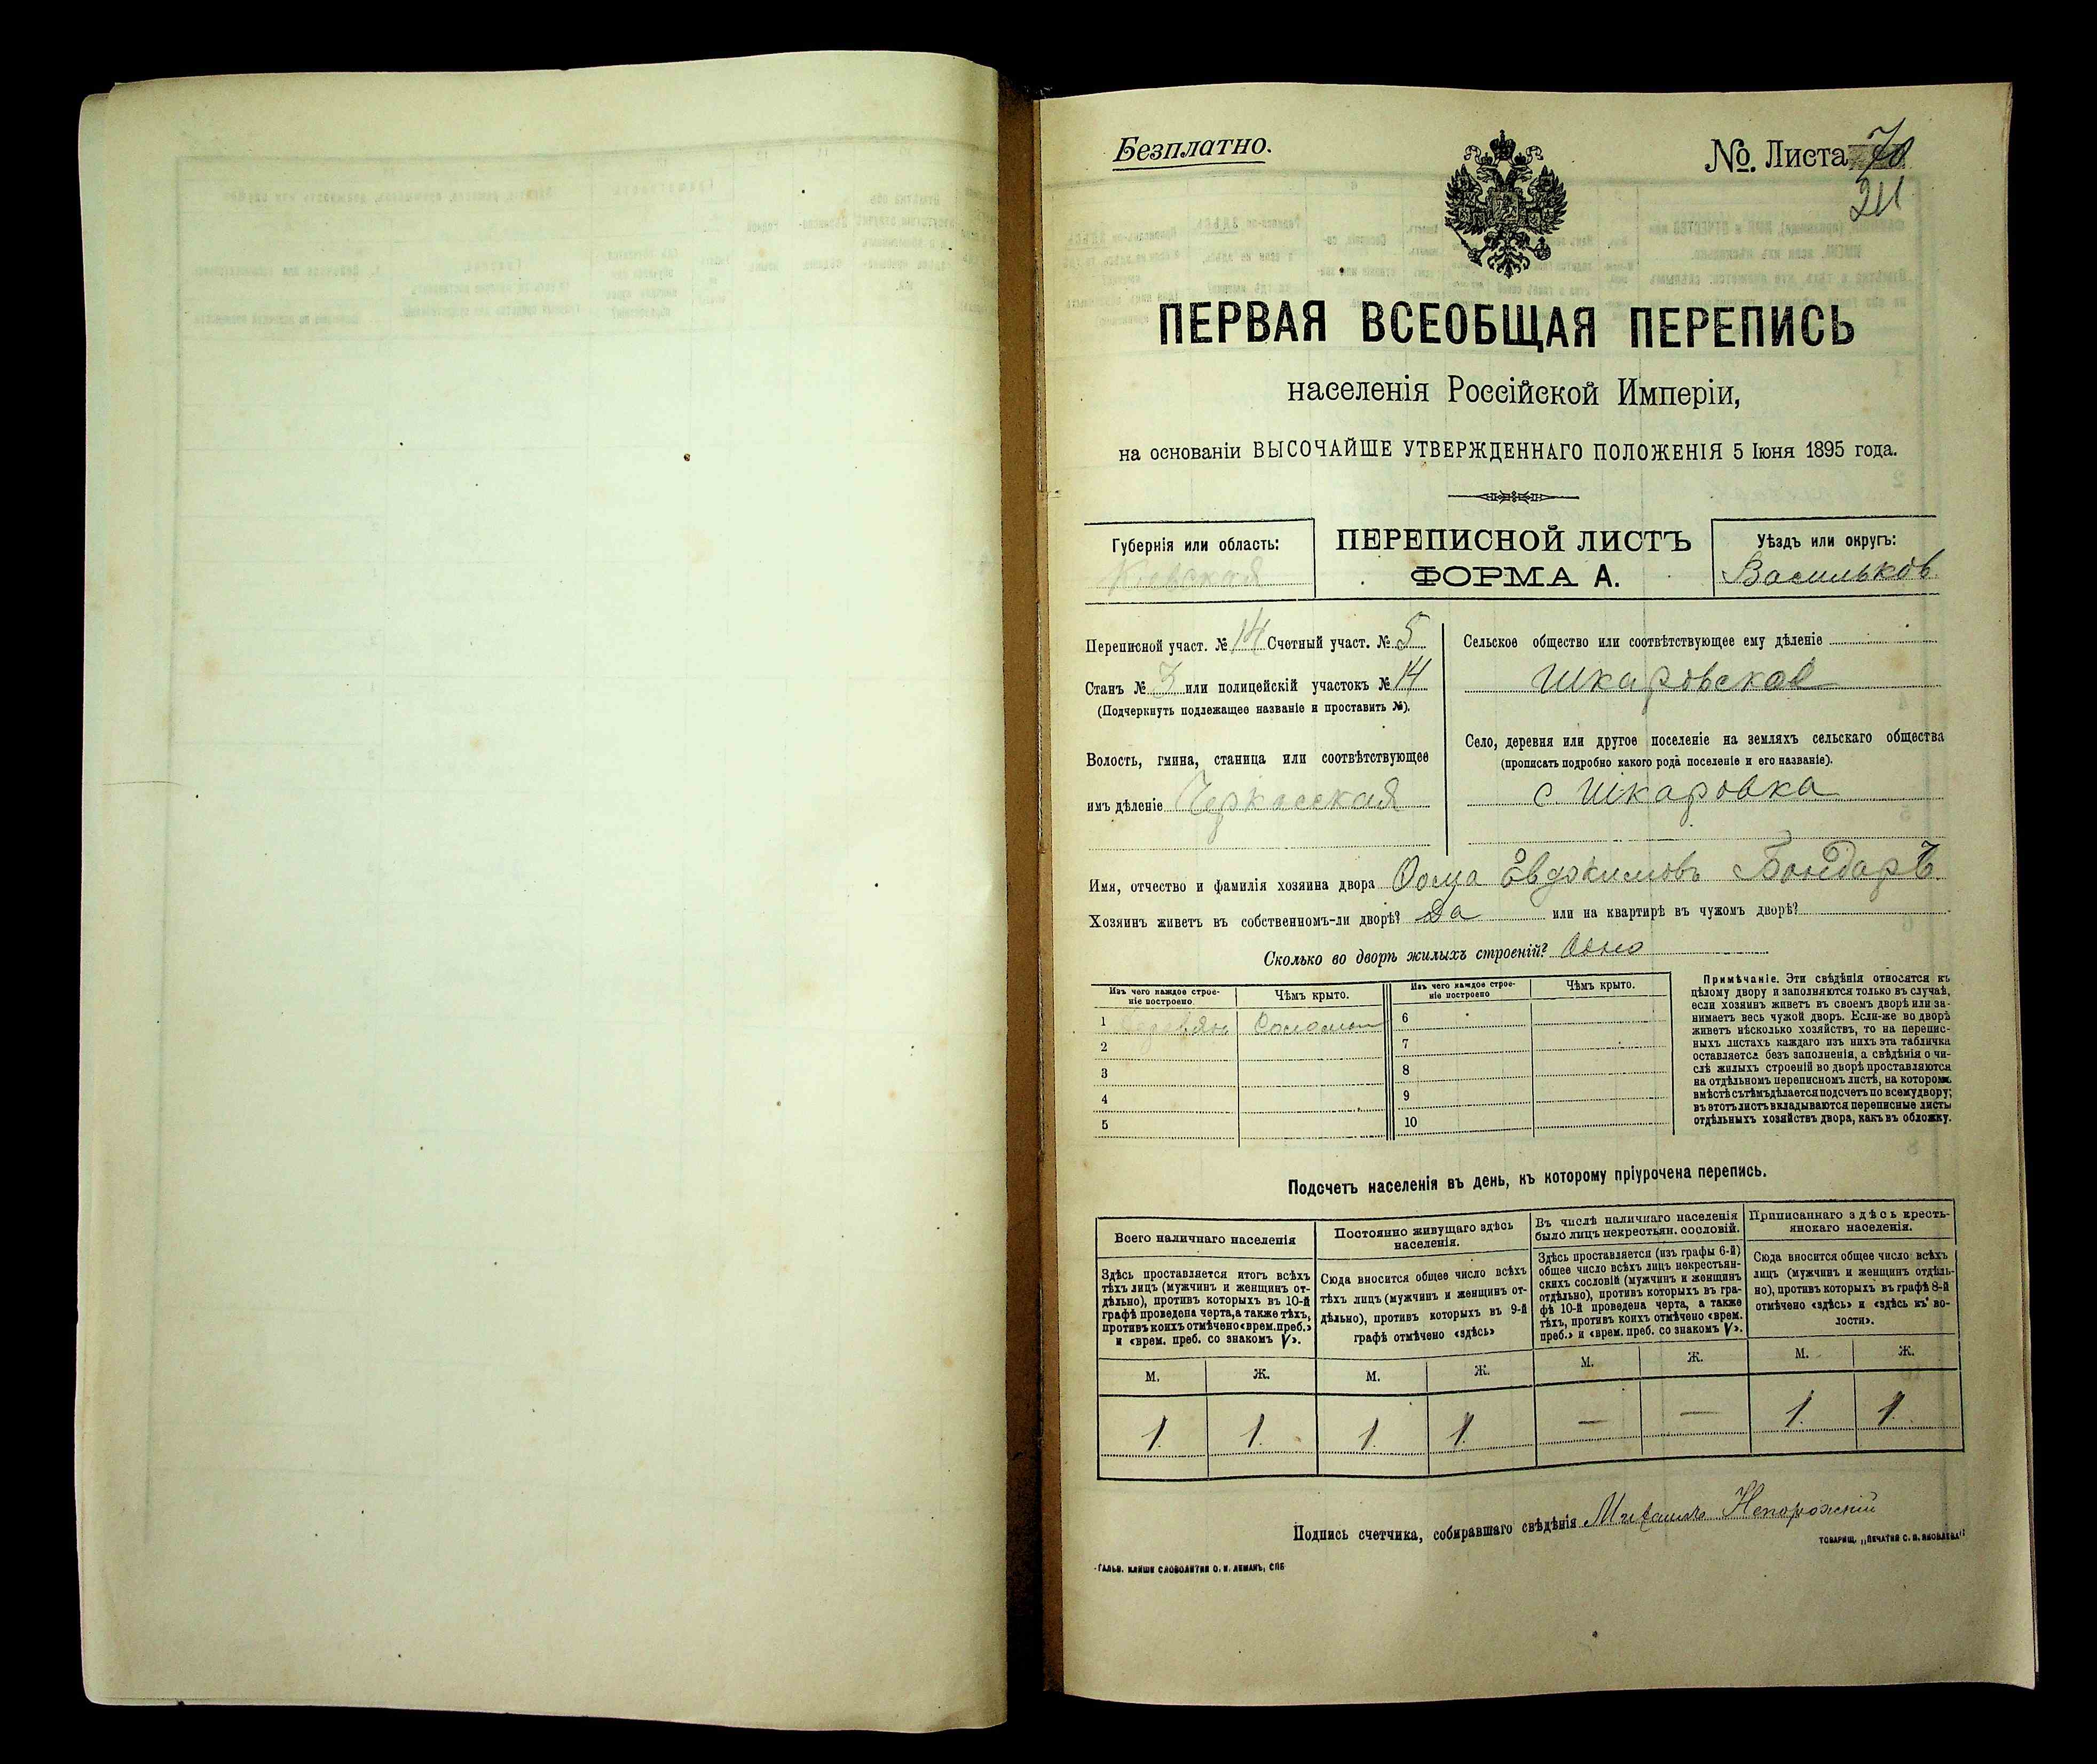 Безплатно.
№. Листа 70
211
ПЕРВАЯ ВСЕОБЩАЯ ПЕРЕПИСЬ
населенія Россійской Имперіи,
на основаніи ВЫСОЧАЙШЕ УТВЕРЖДЕННАГО ПОЛОЖЕНІЯ 5 Іюня 1895 года.
Губернія или область:
Кіевская
ПЕРЕПИСНОЙ ЛИСТЪ
ФОРМА А.
Уѣздъ или округъ:
Васильков.
Переписной участ. № 14 Счетный участ. № 5
Станъ № 3 или полицейскій участокъ № 14
(Подчеркнуть подлежащее названіе и проставить №).
Волость, гмина, станица или соотвѣтствующее
имъ дѣленіе Черкасская
Сельское общество или соотвѣтствующее ему дѣленіе
Шкаровское
Село, деревня или другое поселеніе на земляхъ сельскаго общества
(прописать подробно какого рода поселеніе и его названіе).
с. Шкаровка
Имя, отчество и фамилія хозяина двора Ѳома Евдокимовъ Бондарь.
Хозяинъ живетъ въ собственномъ-ли дворѣ? Да или на квартирѣ въ чужомъ дворѣ?
Сколько во дворѣ жилыхъ строеній? Одно
Изъ чего каждое строе-
ніе построено
Чѣмъ крыто.
Изъ чего каждое строе-
ніе построено
Чѣмъ крыто.
1 Деревян Соломой
2
3
4
5
6
7
8
9
10
Примѣчаніе. Эти свѣдѣнія относятся къ
цѣлому двору и заполняются только въ случаѣ,
если хозяинъ живетъ въ своемъ дворѣ или за-
нимаетъ весь чужой дворъ. Если-же во дворѣ
живетъ нѣсколько хозяйствъ, то на перепис-
ныхъ листахъ каждаго изъ нихъ эта табличка
оставляется безъ заполненія, а свѣдѣнія о чи-
слѣ жилыхъ строеній во дворѣ проставляются
на отдѣльномъ переписномъ листѣ, на которомъ
вмѣстѣ съ тѣмъ дѣлается подсчетъ по всему двору;
въ этотъ листъ вкладываются переписные листы
отдѣльныхъ хозяйствъ двора, какъ въ обложку.
Подсчетъ населенія въ день, къ которому пріурочена перепись.
Всего наличнаго населенія
Здѣсь проставляется итогъ всѣхъ
тѣхъ лицъ (мужчинъ и женщинъ от-
дѣльно), противъ которыхъ въ 10-й
графѣ проведена черта, а также тѣхъ,
противъ коихъ отмѣчено «врем. преб.»
и «врем. преб. со знакомъ V».
Постоянно живущаго здѣсь
населенія.
Сюда вносится общее число всѣхъ
тѣхъ лицъ (мужчинъ и женщинъ от-
дѣльно), противъ которыхъ въ 9-й
графѣ отмѣчено «здѣсь»
Въ числѣ наличнаго населенія
было лицъ некрестьян. сословій.
Здѣсь проставляется (изъ графы 6-й)
общее число всѣхъ лицъ некрестьян-
скихъ сословій (мужчинъ и женщинъ
отдѣльно), противъ которыхъ въ гра-
фѣ 10-й проведена черта, а также
тѣхъ, противъ коихъ отмѣчено «врем.
преб.» и «врем. преб. со знакомъ V».
Приписаннаго здѣсь кресть-
янскаго населенія.
Сюда вносится общее число всѣхъ
лицъ (мужчинъ и женщинъ отдѣль-
но), противъ которыхъ въ графѣ 8-й
отмѣчено «здѣсь» и «здѣсь къ во-
лости».
М. Ж. М. Ж. М. Ж. М. Ж.
1. 1. 1. 1. — — 1. 1.
Подпись счетчика, собиравшаго свѣдѣнія Михаилъ Непорожній
ТОВАРИЩ. „ПЕЧАТНЯ С. П. ЯКОВЛЕВА“
ГАЛЬВ. КЛИШЕ СЛОВОЛИТНИ О. И. ЛЕМАНЪ, СПБ